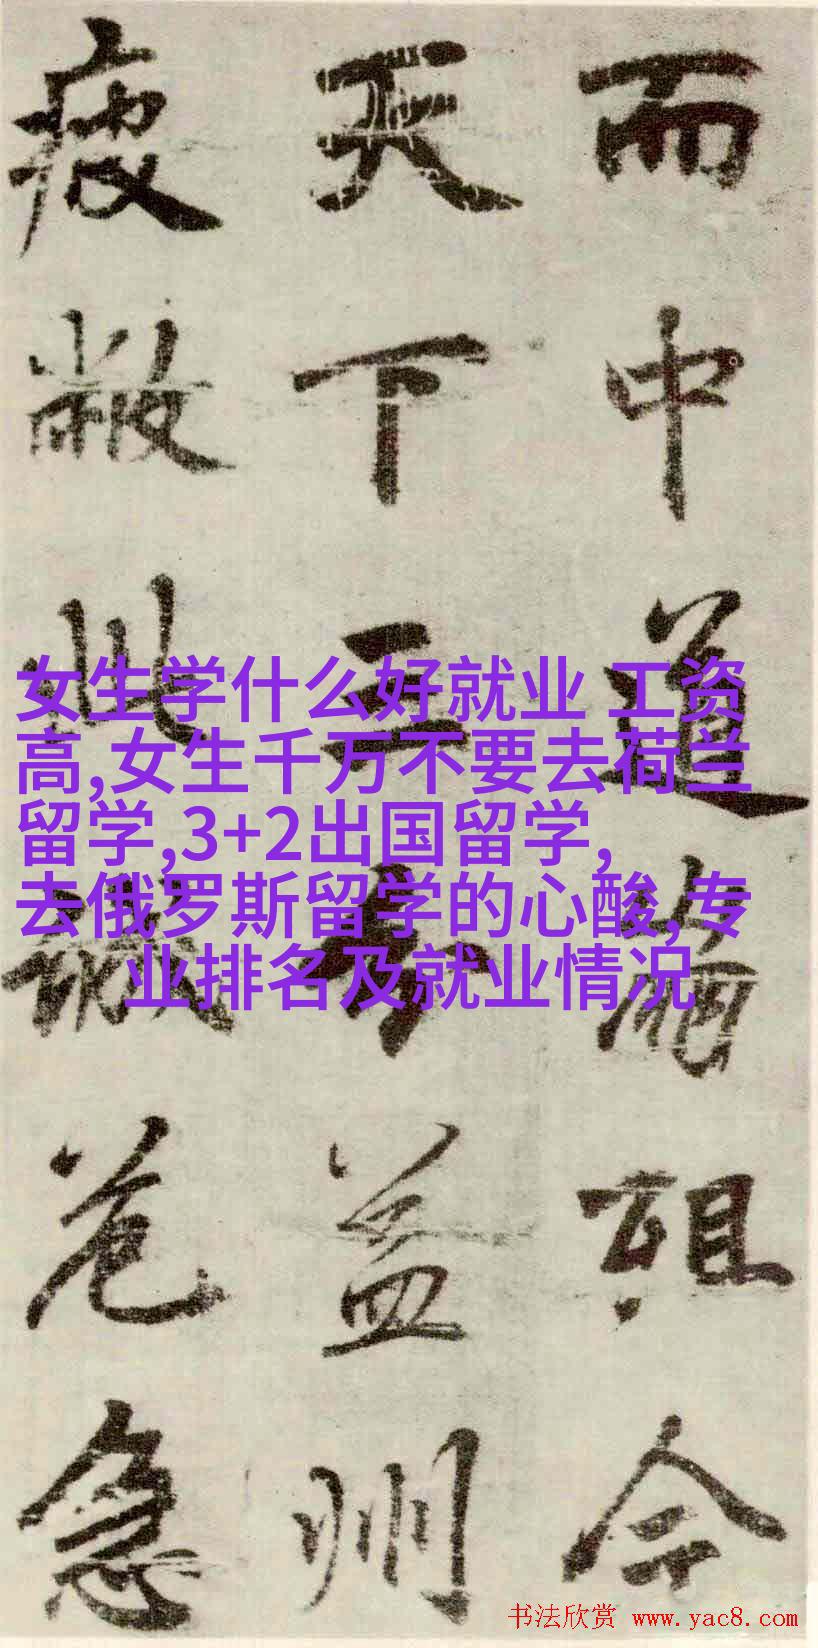 而中道崩殂今
天下三分益州
疲敝此誠危急
女生学什么好就业 工资
高,女生千万不要去荷兰
留学,3+2出国留学,
去俄罗斯留学的心酸,专
业排名及就业情况
书法欣赏 www.yac8.com